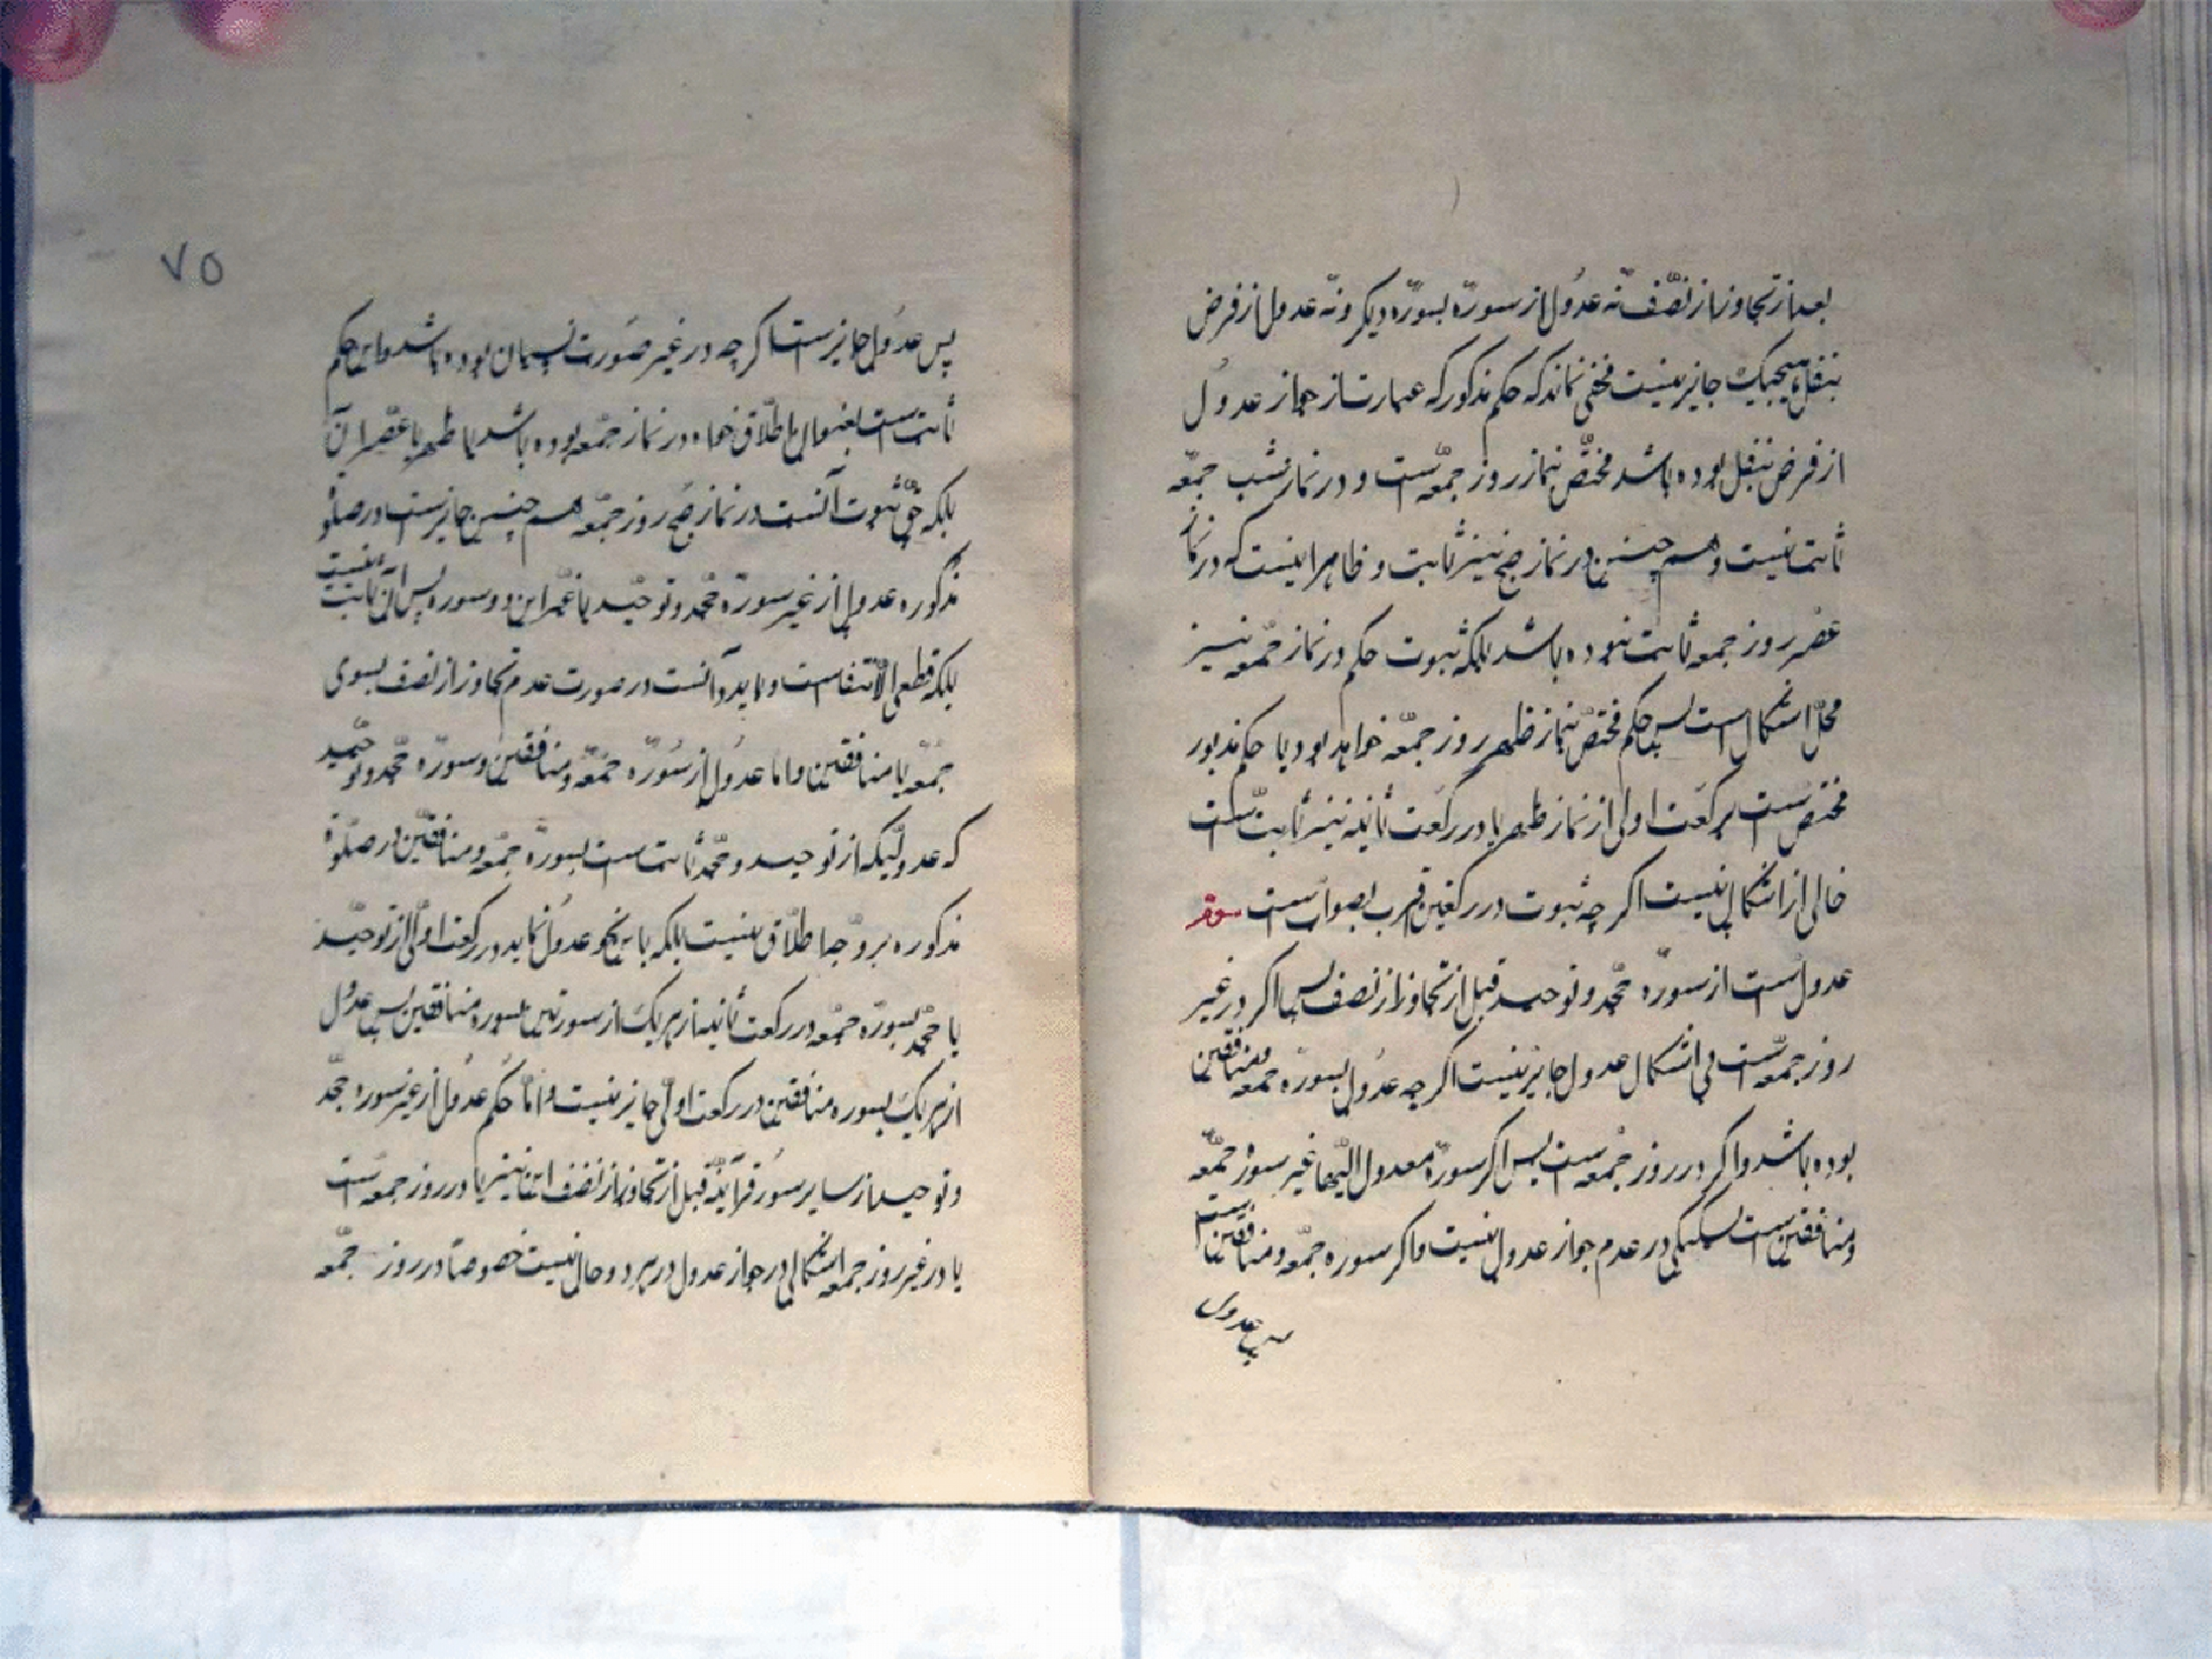 بعد از تجاوز از نصف نه عدول از سوره بسوره دیکر ونه عدول از فرض
بنفل هیچیک جایز نیست مخفی نماند که حکم مذکور که عبارتست از جواز عدول
از فرض بنفل بوده باشد مختص بنماز روز جمعه است و در نماز شب جمعه
ثابت نیست و همچنین در نماز صبح نیز ثابت و ظاهرا نیست که در نماز
عصر روز جمعه ثابت نبوده باشد بلکه ثبوت حکم در نماز جمعه نیز
محل اشکال است پس حکم مختص بنماز ظهر روز جمعه خواهد بود یا حکم مذبور
مختص است برکعت اولی از نماز ظهر یا در رکعت ثانیه نیز ثابت است
خالی از اشکال نیست اکر چه ثبوت در رکعتین قرب بصوابست
عدولست از سوره جحد و توحید قبل از تجاوز از نصف پس اکر در غیر
روز جمعه است بی اشکال عدول جایز نیست اکر چه عدول بسوره جمعه ومنافقین
بوده باشد و اکر در روز جمعه است پس اکر سوره معدول الیها غیر سوره جمعه
ومنافقین است شکی در عدم جواز عدول نیست واکر سوره جمعه ومنافقین است
پس عدول
۷۵
پس عدول جایز است اکر چه در غیر صورت نسیان بوده باشد واین حکم
ثابت است بعنوان اطلاق خواه در نماز جمعه بوده باشد یا ظهر یا عصر آن
بلکه حق ثبوت آنست در نماز صبح روز جمعه همچنین جایز است در صلوة
مذکوره عدول از غیر سوره جحد و توحید یا غیر این دو سوره پس آن ثابت نیست
بلکه قطعی الانتفاست و باید دانست در صورت عدم تجاوز از نصف بسوی
جمعه یا منافقین واما عدول از سوره جمعه ومنافقین وسوره جحد و توحید
که عدولیکه از توحید و جحد ثابت است بسوره جمعه ومنافقین در صلوة
مذکوره بر وجه اطلاق نیست بلکه باین نحو عدول نماید در رکعت اولی از توحید
یا جحد بسوره جمعه در رکعت ثانیه از هریک از سورتین بسوره منافقین پس عدول
از هریک بسوره منافقین در رکعت اولی جایز نیست واما حکم عدول از غیر سوره جحد
و توحید از سایر سور قرآنیه قبل از تجاوز از نصف این نیز یا در روز جمعه است
یا در غیر روز جمعه اشکالی در جواز عدول در هر دو حال نیست خصوصا در روز جمعه